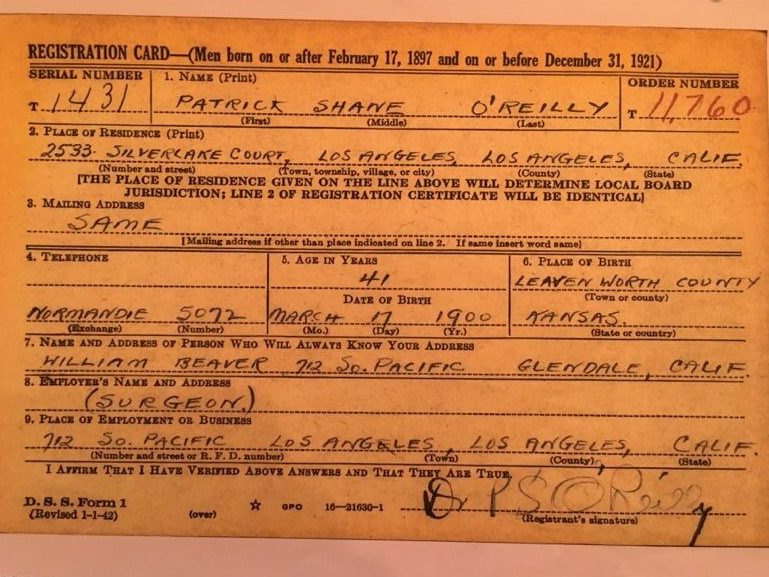 REGISTRATION CARD—(Men born on or after February 17, 1897 and on or before December 31, 1921)
SERIAL NUMBER 1. NAME (Print) ORDER NUMBER
T 1431 PATRICK SHANE O'REILLY T 11,760
(First) (Middle) (Last)
2. PLACE OF RESIDENCE (Print)
2533 SILVERLAKE COURT, LOS ANGELES, LOS ANGELES, CALIF.
(Number and street) (Town, township, village, or city) (County) (State)
[THE PLACE OF RESIDENCE GIVEN ON THE LINE ABOVE WILL DETERMINE LOCAL BOARD
JURISDICTION; LINE 2 OF REGISTRATION CERTIFICATE WILL BE IDENTICAL]
3. MAILING ADDRESS
SAME
[Mailing address if other than place indicated on line 2. If same insert word same]
4. TELEPHONE 5. AGE IN YEARS 6. PLACE OF BIRTH
41 LEAVEN WORTH COUNTY
DATE OF BIRTH (Town or county)
NORMANDIE 5072 MARCH 17 1900 KANSAS.
(Exchange) (Number) (Mo.) (Day) (Yr.) (State or country)
7. NAME AND ADDRESS OF PERSON WHO WILL ALWAYS KNOW YOUR ADDRESS
WILLIAM BEAVER 712 SO. PACIFIC GLENDALE, CALIF.
8. EMPLOYER'S NAME AND ADDRESS
(SURGEON.)
9. PLACE OF EMPLOYMENT OR BUSINESS
712 SO. PACIFIC LOS ANGELES, LOS ANGELES, CALIF.
(Number and street or R. F. D. number) (Town) (County) (State)
I AFFIRM THAT I HAVE VERIFIED ABOVE ANSWERS AND THAT THEY ARE TRUE.
D. S. S. Form 1 Dr P S O'Reilly
(Revised 1-1-42) (over) ☆ GPO 16—21630-1 (Registrant's signature)